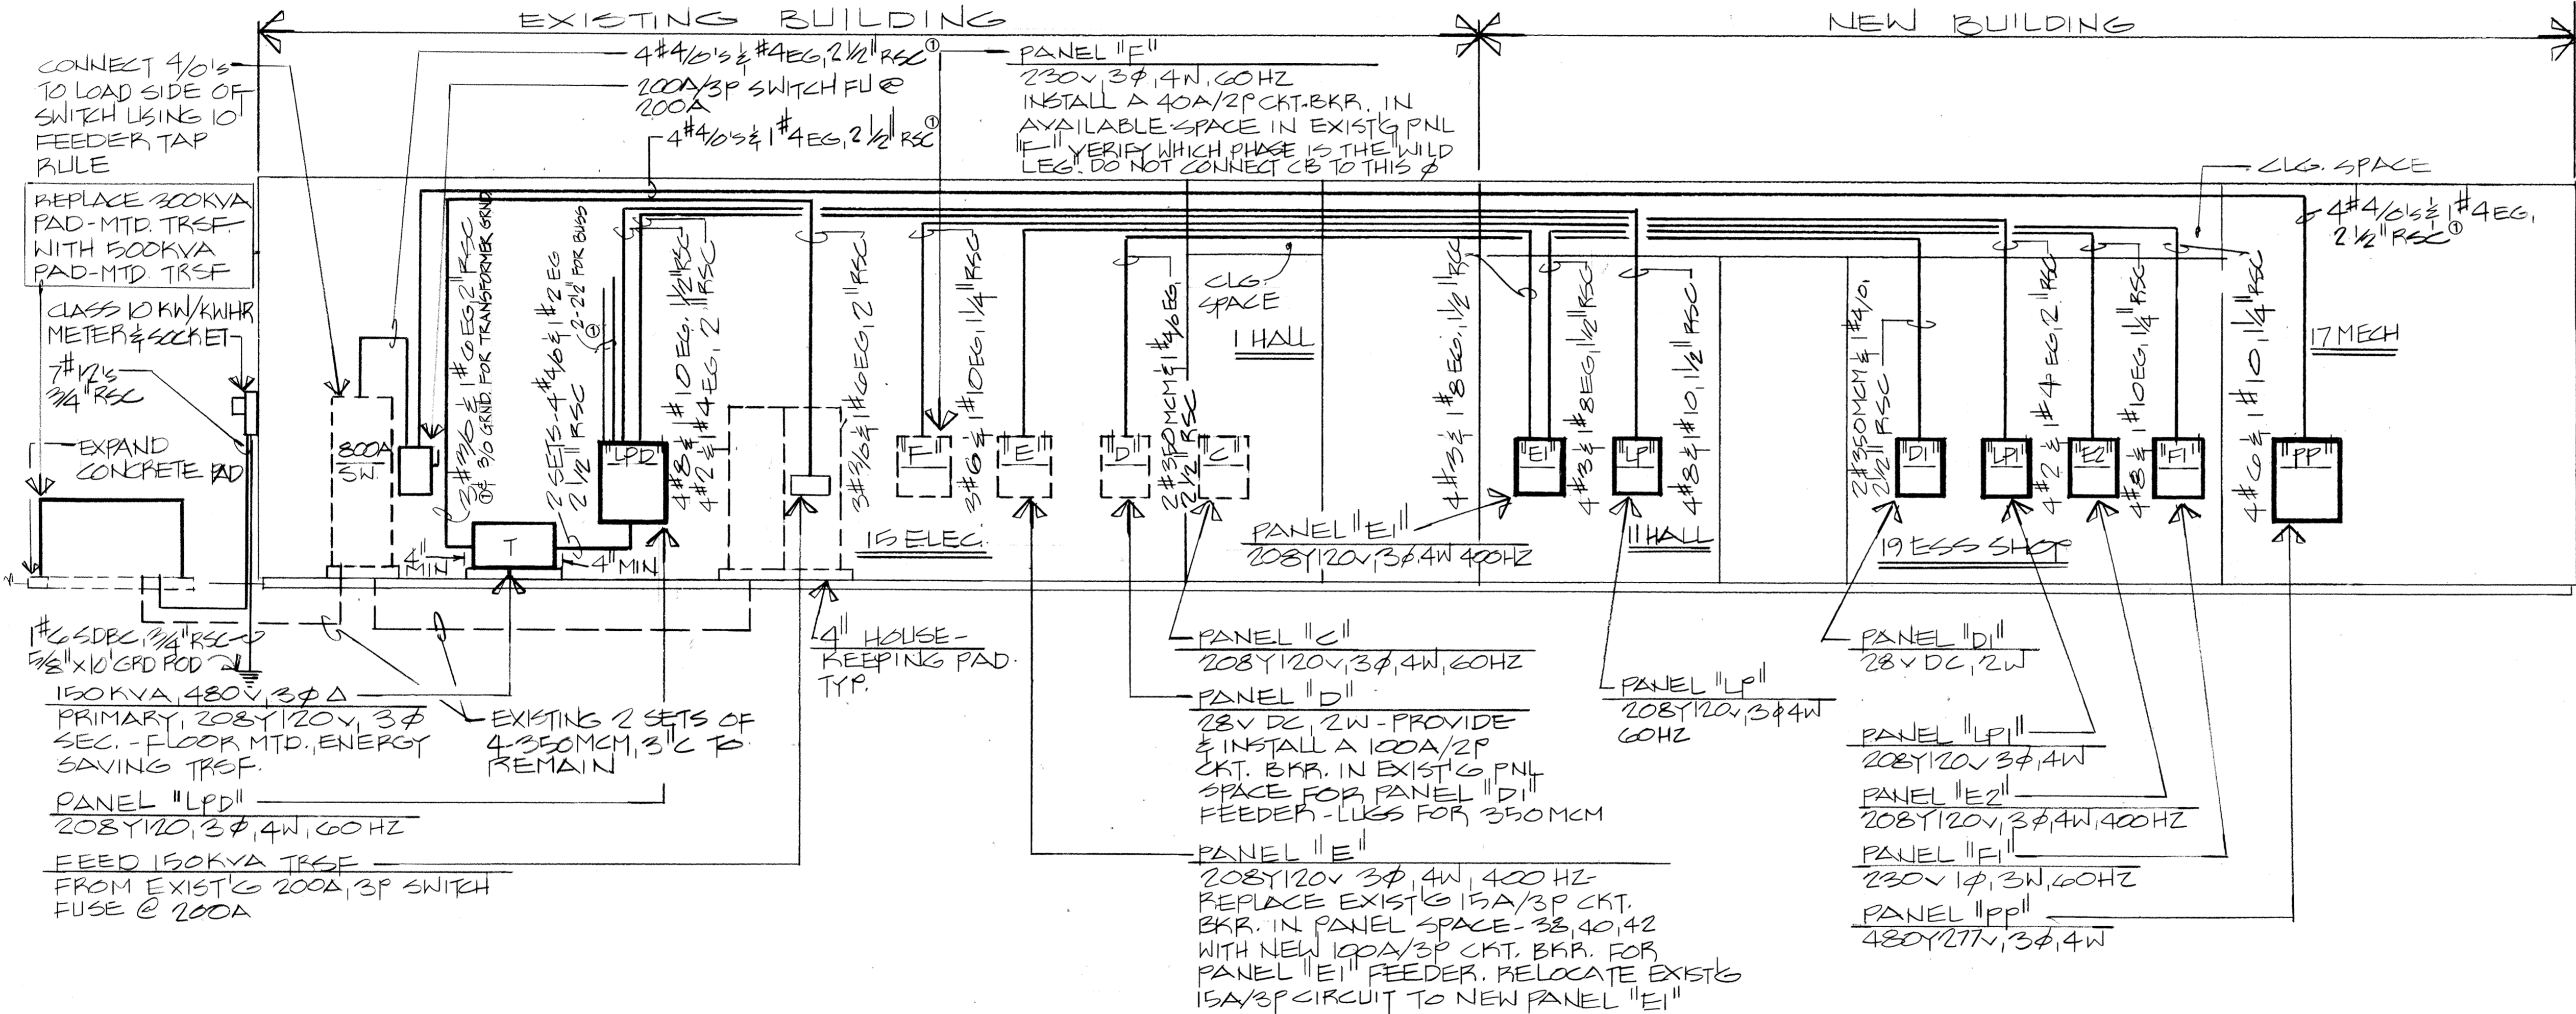 EXISTING BUILDING
NEW BUILDING
CONNECT 4/0's
TO LOAD SIDE OF
SWITCH USING 10'
FEEDER TAP
RULE
4#4/0's & #4EG, 2 1/2" RSC ①
200A/3P SWITCH FU @
200A
4#4/0's & 1#4EG, 2 1/2" RSC ①
PANEL "F"
230V, 3Ø, 4W, 60HZ
INSTALL A 40A/2P CKT. BKR. IN
AVAILABLE SPACE IN EXIST'G PNL
"F" VERIFY WHICH PHASE IS THE "WILD
LEG". DO NOT CONNECT CB TO THIS Ø
CLG. SPACE
4#4/0's & 1#4EG,
2 1/2" RSC ①
REPLACE 300KVA
PAD-MTD. TRSF.
WITH 500KVA
PAD-MTD. TRSF
CLASS 10 KW/KWHR
METER & SOCKET
7#12's
3/4" RSC
EXPAND
CONCRETE PAD
800A
SW.
3#3/0 & 1#6EG, 2" RSC
① & 3/0 GRND. FOR TRANSFORMER GRND.
2 SETS-4#4/0 & 1#2 EG
2 1/2" RSC
(2-2 1/2" FOR BUSS
①
"LPD"
4#8 & 1#10EG, 1 1/2" RSC
4#2 & 1#4EG, 2" RSC
3#3/0 & 1#6EG, 2" RSC
"F"
3#6 & 1#10EG, 1 1/4" RSC
"E"
"D"
2#350MCM & 1#4/0EG,
2 1/2" RSC
"C"
CLG.
SPACE
1 HALL
4#3 & 1#8EG, 1 1/2" RSC
"E1"
4#3 & 1#8EG, 1 1/2" RSC
"LP"
4#8 & 1#10, 1 1/2" RSC
2#350MCM & 1#4/0,
2 1/2" RSC
"D1"
"LP1"
4#2 & 1#4EG, 2" RSC
"E2"
4#8 & 1#10EG, 1 1/4" RSC
"F1"
4#6 & 1#10, 1 1/4" RSC
"PP"
17 MECH
T
4"
MIN
4" MIN
15 ELEC.
PANEL "E1"
208Y120V, 3Ø, 4W 400HZ
11 HALL
19 ESS SHOP
1#6 SDBC, 3/4" RSC
5/8" X 10' GRD ROD
4" HOUSE-
KEEPING PAD.
TYP.
150KVA, 480V, 3Ø Δ
PRIMARY, 208Y120V, 3Ø
SEC. - FLOOR MTD., ENERGY
SAVING TRSF.
EXISTING 2 SETS OF
4-350MCM, 3"C TO
REMAIN
PANEL "LPD"
208Y120, 3Ø, 4W, 60HZ
FEED 150KVA TRSF
FROM EXIST'G 200A, 3P SWITCH
FUSE @ 200A
PANEL "C"
208Y120V, 3Ø, 4W, 60HZ
PANEL "D"
28V DC, 2W - PROVIDE
& INSTALL A 100A/2P
CKT. BKR. IN EXIST'G PNL
SPACE FOR PANEL "D1"
FEEDER - LUGS FOR 350MCM
PANEL "E"
208Y120V 3Ø, 4W, 400 HZ-
REPLACE EXIST'G 15A/3P CKT.
BKR. IN PANEL SPACE - 38, 40, 42
WITH NEW 100A/3P CKT. BKR. FOR
PANEL "E1" FEEDER. RELOCATE EXIST'G
15A/3P CIRCUIT TO NEW PANEL "E1"
PANEL "LP"
208Y120V, 3Ø 4W
60HZ
PANEL "D1"
28V DC, 2W
PANEL "LP1"
208Y120V 3Ø, 4W
PANEL "E2"
208Y120V, 3Ø, 4W, 400HZ
PANEL "F1"
230V 1Ø, 3W, 60HZ
PANEL "PP"
480Y277V, 3Ø, 4W